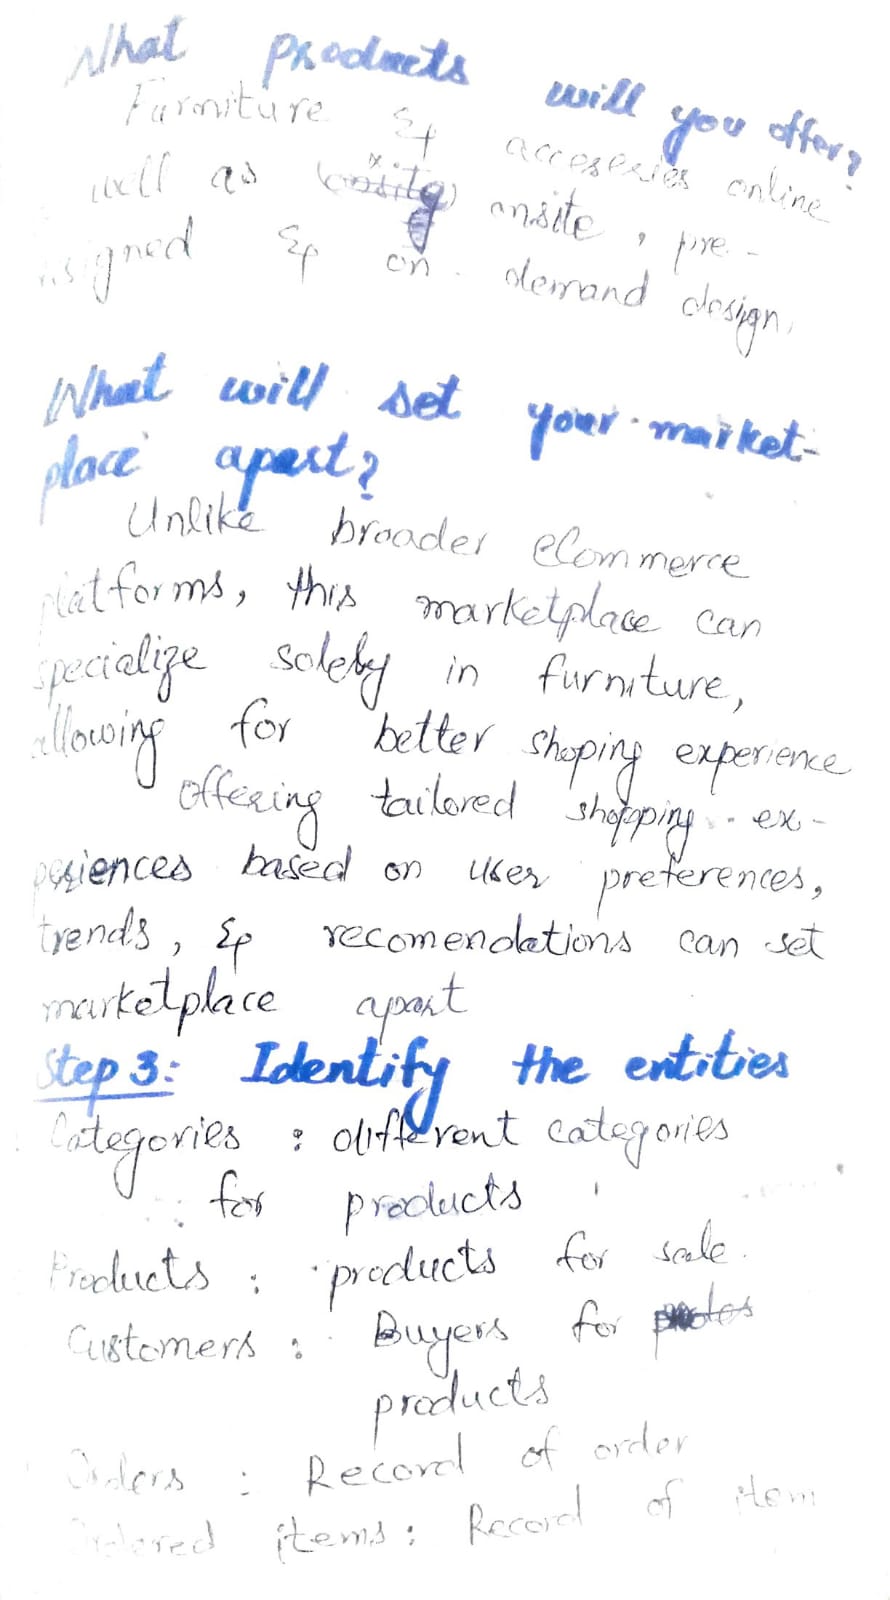 What products will you offer?
Furniture & acceseries online
well as onsite, pre-
signed & on-demand design.
What will set your market-
place apart?
Unlike broader eCommerce
platforms, this marketplace can
specialize solely in furniture,
allowing for better shoping experience
Offering tailored shopping ex-
periences based on user preferences,
trends, & recomendations can set
marketplace apart
Step 3: Identify the entities
Categories : different categories
for products
Products : products for sale.
Customers : Buyers for
products
Orders : Record of order
Ordered items : Record of item